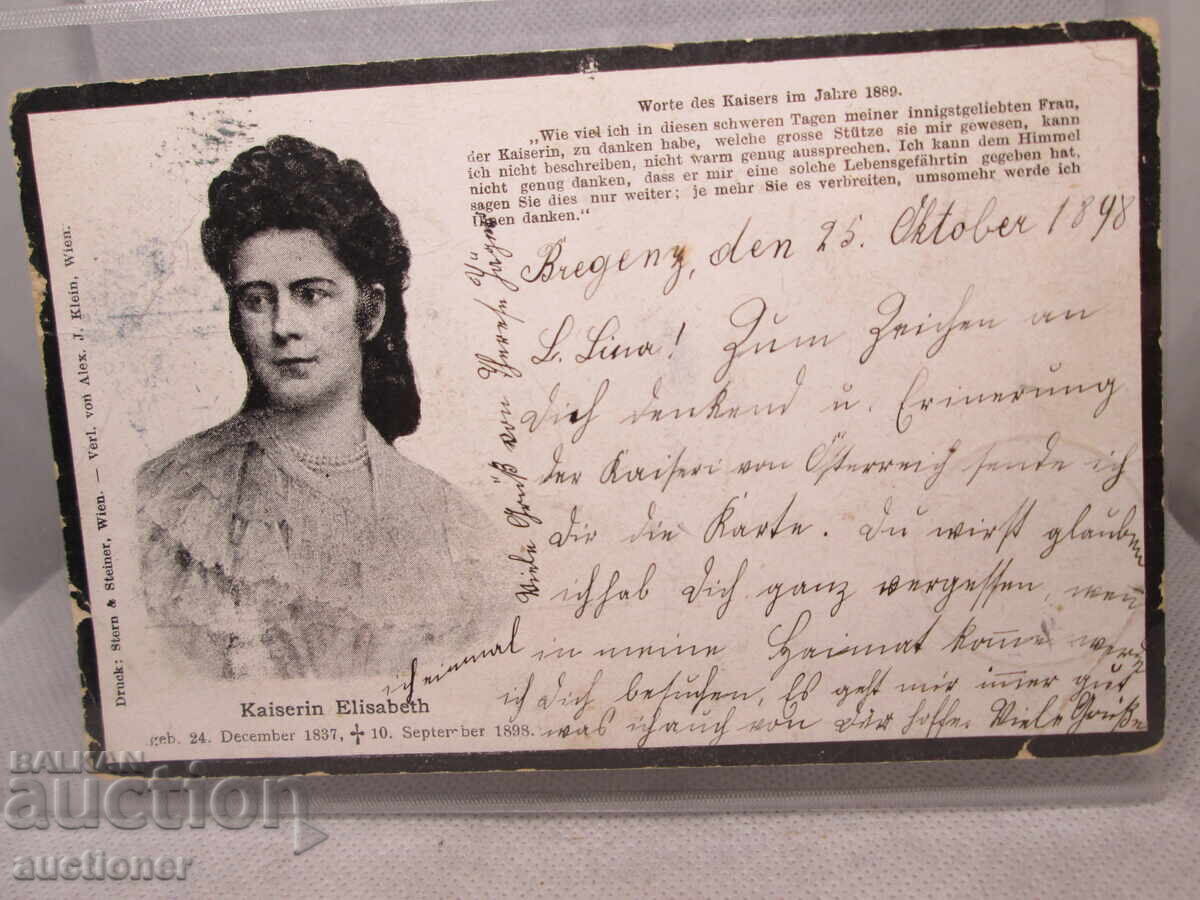 Worte des Kaisers im Jahre 1889.
„Wie viel ich in diesen schweren Tagen meiner innigstgeliebten Frau,
der Kaiserin, zu danken habe, welche grosse Stütze sie mir gewesen, kann
ich nicht beschreiben, nicht warm genug aussprechen. Ich kann dem Himmel
nicht genug danken, dass er mir eine solche Lebensgefährtin gegeben hat,
sagen Sie dies nur weiter; je mehr Sie es verbreiten, umsomehr werde ich
Ihnen danken.“
Bregenz, den 25. Oktober 1898
L. Lina! Zum Zeichen an
Dich denkend u. Erinerung
der Kaiseri von Österreich sende ich
Dir die Karte. Du wirst glauben
ich hab Dich ganz vergessen, wen̄
in meine Haimat kom̄e werd
ich einmal
ich Dich besuchen, Es geht mir im̄er gut
was ich auch von Dir hoffe. Viele Grüße
Viele Grüß von Therese
Kaiserin Elisabeth
geb. 24. December 1837, ✝ 10. September 1898.
Druck: Stern & Steiner, Wien. — Verl. von Alex. J. Klein, Wien.
BALKAN
auction
auctioner